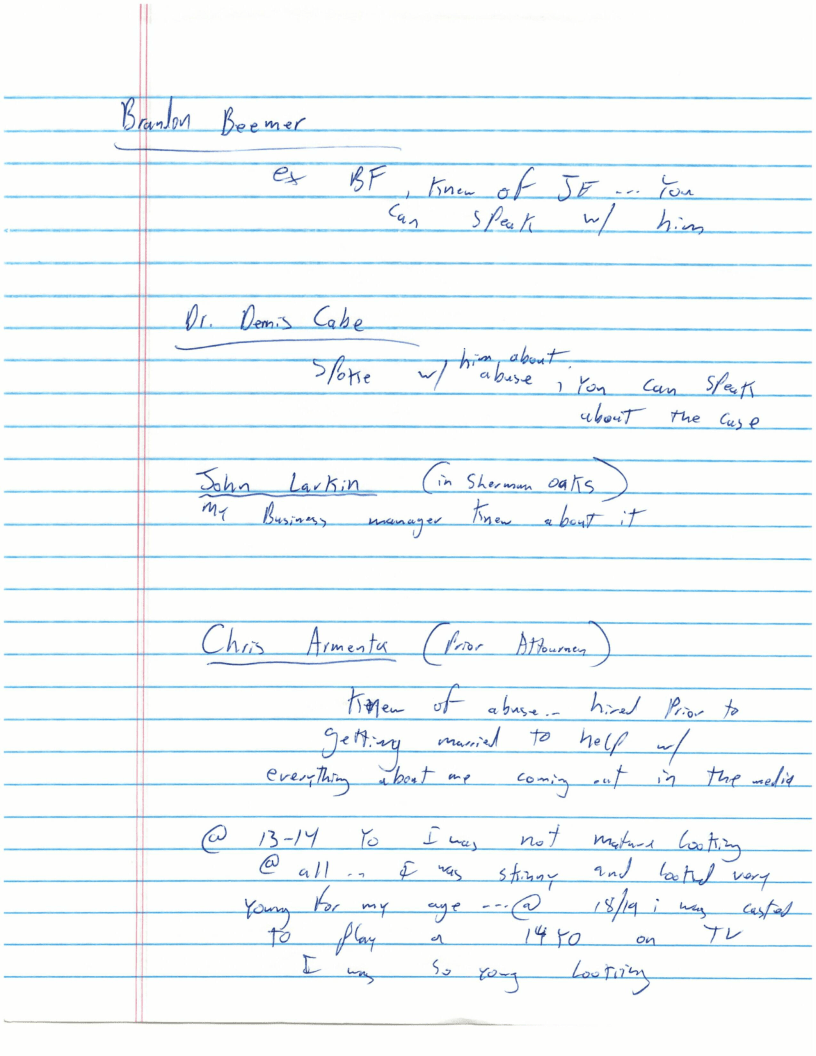 Brandon Beemer
ex BF, Knew of JE --- You
can speak w/ him
Dr. Dennis Cabe
Spoke w/ him about
abuse, You can speak
about the case
John Larkin (in Sherman oaks)
My Business manager Knew about it
Chris Armenta (Prior Attourney)
Knew of abuse.. hired Prior to
getting married to help w/
everything about me coming out in the media
@ 13-14 YO I was not mature looking
@ all .. I was skinny and looked very
young for my age ---@ 18/19 i was casted
to play a 14 YO on TV
I was so young looking